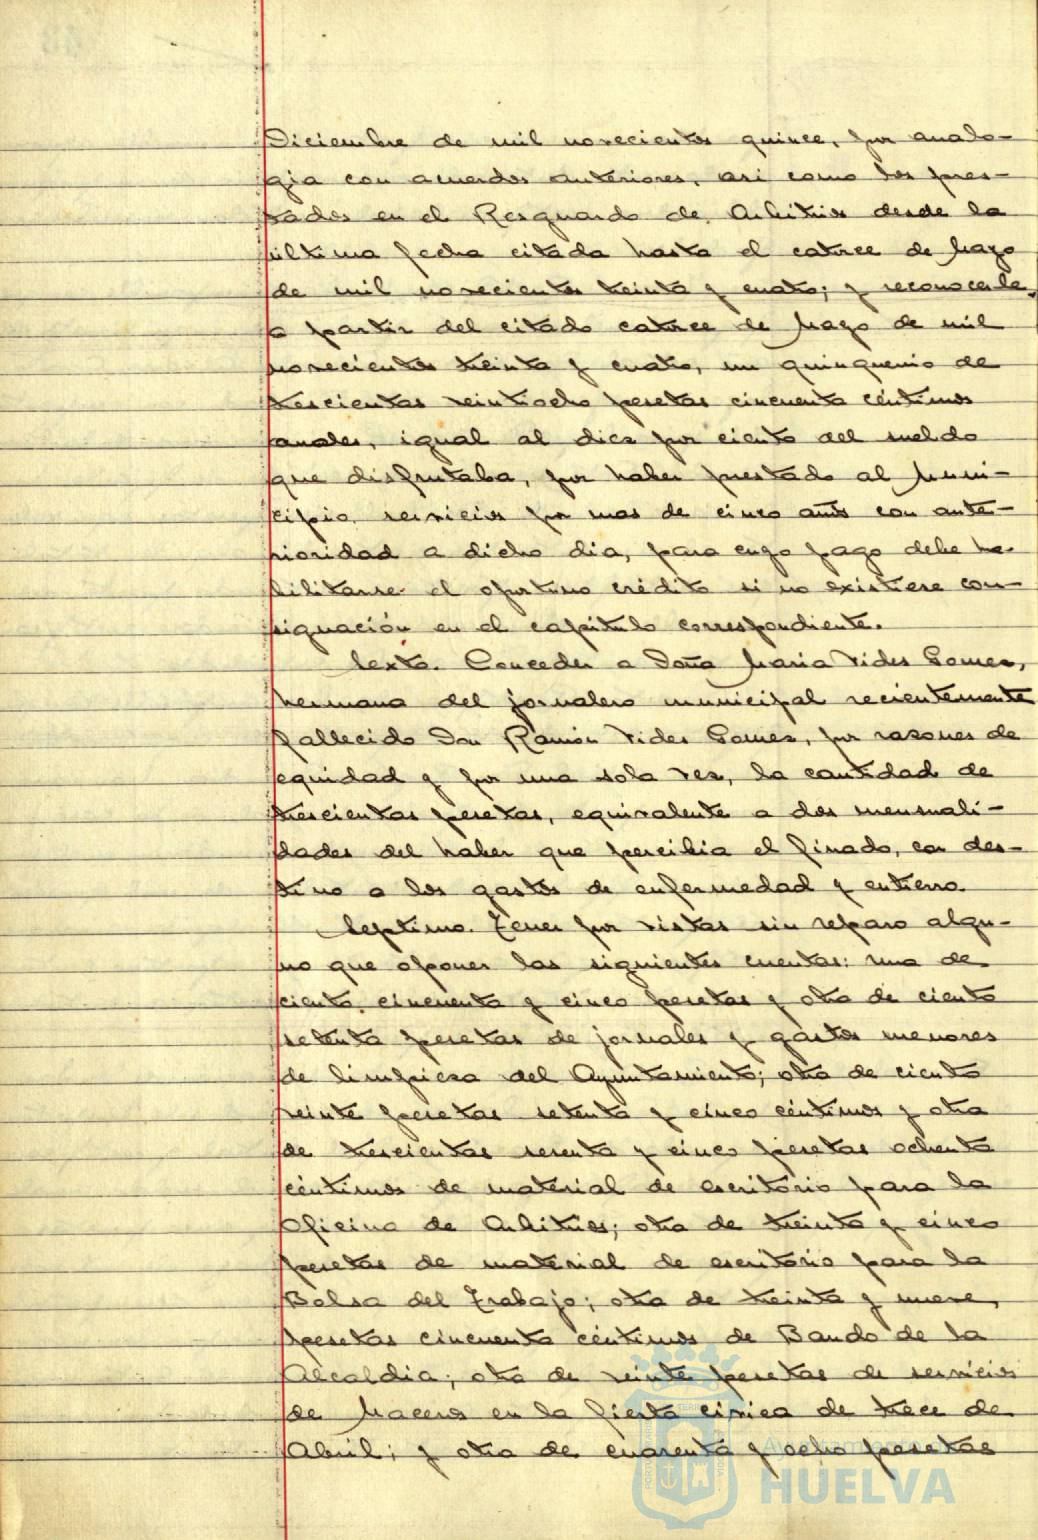 Diciembre de mil novecientos quince, por analo-
gia con acuerdos anteriores, asi como los pres-
tados en el Resguardo de Arbitrios desde la
última fecha citada hasta el catorce de Mayo
de mil novecientos treinta y cuatro; y reconocerle,
a partir del citado catorce de Mayo de mil
novecientos treinta y cuatro, un quinquenio de
trescientas veintiocho pesetas cincuenta céntimos
anuales, igual al diez por ciento del sueldo
que disfrutaba, por haber prestado al Muni-
cipio servicios por mas de cinco años con ante-
rioridad a dicho dia, para cuyo pago debe ha-
bilitarse el oportuno crédito si no existiere con-
signación en el capítulo correspondiente.
Sexto. Conceder a Doña Maria Vides Gomez,
hermana del jornalero municipal recientemente
fallecido Don Ramón Vides Gomez, por razones de
equidad y por una sola vez, la cantidad de
trescientas pesetas, equivalente a dos mensuali-
dades del haber que percibia el finado, con des-
tino a los gastos de enfermedad y entierro.
Septimo. Tener por vistas sin reparo algu-
no que oponer las siguientes cuentas: una de
ciento cincuenta y cinco pesetas y otra de ciento
setenta pesetas de jornales y gastos menores
de limpieza del Ayuntamiento; otra de ciento
veinte pesetas setenta y cinco céntimos y otra
de trescientas sesenta y cinco pesetas ochenta
céntimos de material de escritorio para la
Oficina de Arbitrios; otra de treinta y cinco
pesetas de material de escritorio para la
Bolsa del Trabajo; otra de treinta y nueve
pesetas cincuenta céntimos de Bando de la
Alcaldia; otra de veinte pesetas de servicios
de Maceros en la fiesta civica de trece de
Abril; y otra de cuarenta y ocho pesetas
HUELVA